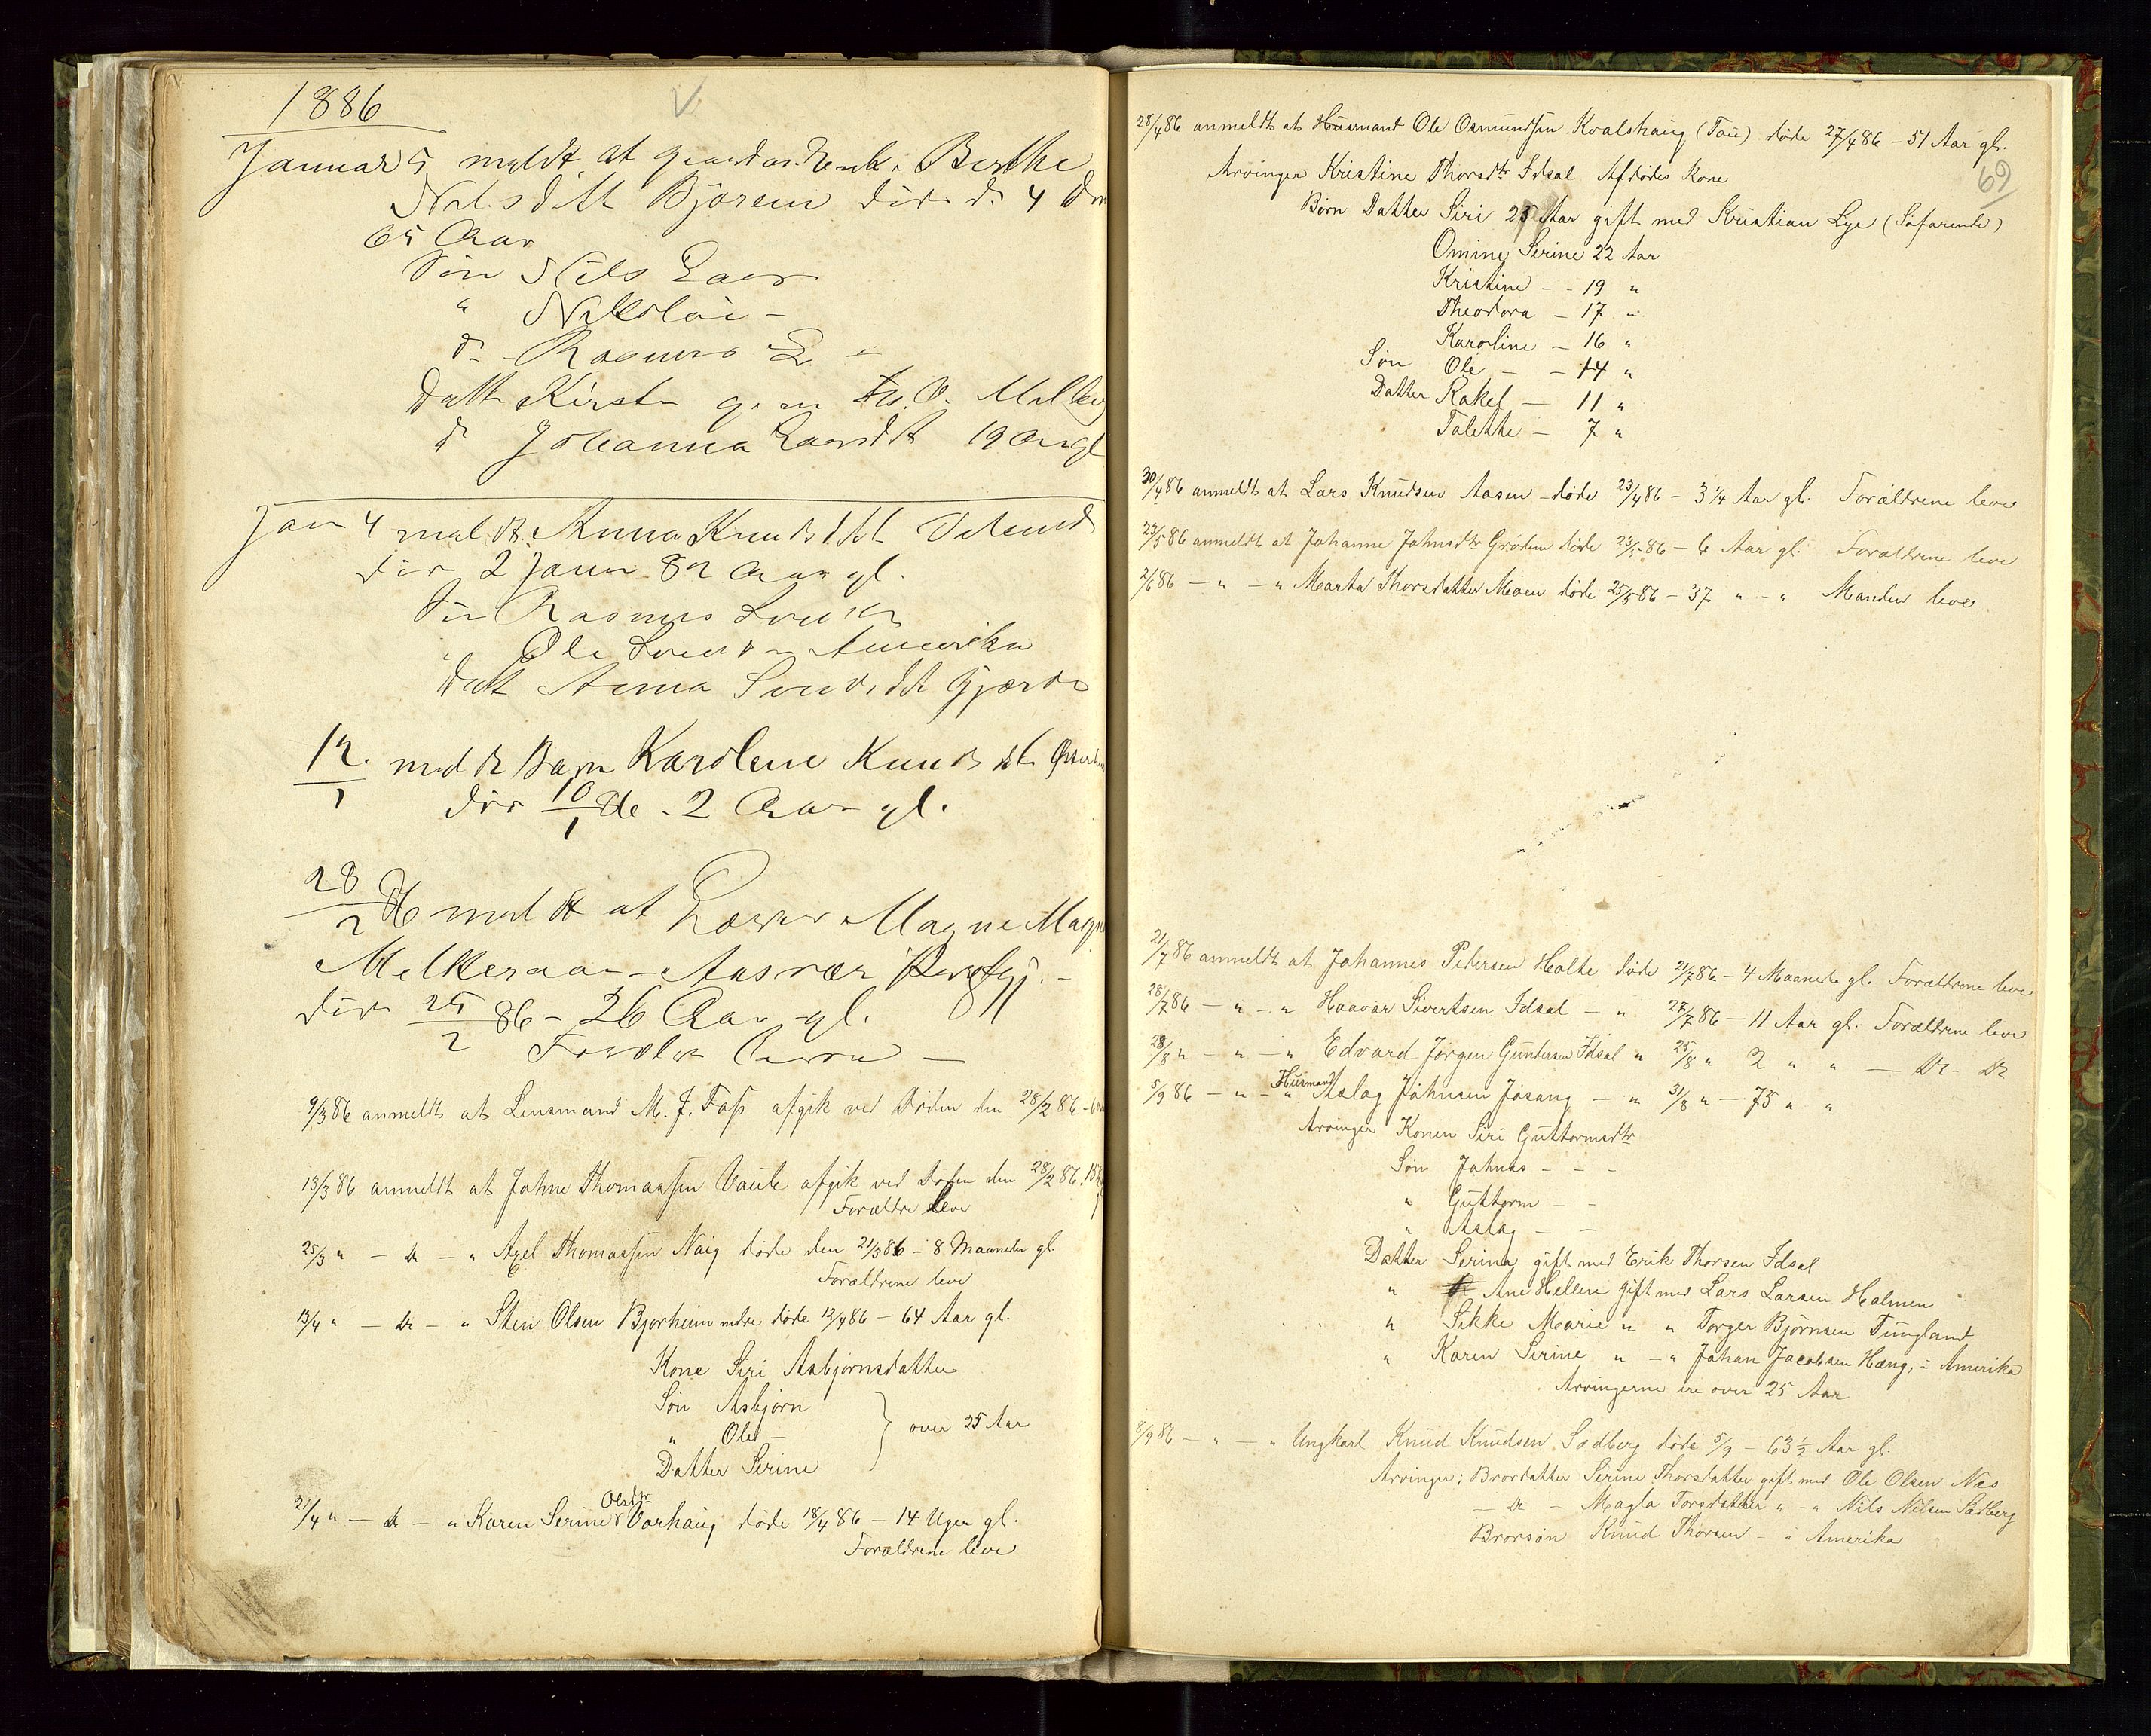 1886
Januar 5 meldt at Berthe
Nilsdtt Bjøreim død d. 4 Dm
65 Aar
Søn Nils Lars
" Nikolai -
d. Rasmus L
Datt Kirst g. m.
d Johanna Larsdt 19 Aar gl
Jan 4 meldt Anna Knudsdtt
død 2 Janu 82 Aar gl.
Søn Rasmus
" Ole Amerika
Datt Anna Gjerde
12/1 meldt Barn Karolene Knudsdt
død 10/1 86 - 2 Aar gl.
28/2 86 meldt at Magne
Melkeraaen - Aasvær
død 25/2 86 - 26 Aar gl.
9/3 86 anmeldt at Lensmand M. J. Foss afgik ved Døden den 28/2 86 -
13/3 86 anmeldt at Johne Thomassen Vaule afgik ved Døden den 28/2 86.
Forældre leve
25/3 " - do - " Axel Thomassen Naig døde den 21/3 86 - 8 Maaneder gl.
Forældrene leve
13/4 " - do - " Sten Olsen Bjorheim nedre døde 12/4 86 - 64 Aar gl.
Kone Siri Asbjørnsdatter
Søn Asbjørn
" Ole - } over 25 Aar
Datter Serine
21/4 " - do - " Karen Serine Olsdtr Varhaug døde 18/4 86 - 14 Uger gl.
Forældrene leve
69
28/4 86 anmeldt at Husmand Ole Osmundsen Kvalshaug (Tau) døde 27/4 86 - 51 Aar gl.
Arvinger Kristine Thorsdtr Idsal Afdødes Kone
Børn Datter Siri 25 Aar gift med Kristian Lye (Søfarende)
Omine Serine 22 Aar
Kristine - - 19 "
Theodora - 17 "
Karoline - 16 "
Søn Ole - - 14 "
Datter Rakel - 11 "
Talette - 7 "
30/4 86 anmeldt at Lars Knudsen Aasen døde 23/4 86 - 3 1/4 Aar gl. Forældrene leve
23/5 86 anmeldt at Johanne Johnsdtr Grødem døde 23/5 86 - 6 Aar gl. Forældrene leve
2/6 86 - " - " Marta Thorsdatter Moen døde 25/5 86 - 37 " - " Manden lever
21/7 86 anmeldt at Johannes Pedersen Holte døde 21/7 86 - 4 Maaneder gl. Forældrene leve
28/7 86 - " - " Haavar Sivertsen Idsal - " 27/7 86 - 11 Aar gl. Forældrene leve
28/8 " - " - " Edvard Jørgen Gundersen Idsal " 25/8 " 2 " " - Do - Do
5/9 86 - " - " Husmand Aslag Johnsen Jøsang - " 31/8 " - 75 " "
Arvinger Konen Siri Guttormsdtr
Søn Johnas - - -
" Guttorm - -
" Aslag - -
Datter Serina gift med Erik Thorsen Idsal
" Ane Helene gift med Lars LarsenHolmen
" Sikke Marie " " Torger Bjørnsen Tungland
" Karen Serine " - " Johan Jacobsen Haug, i Amerika
Arvingerne ere over 25 Aar
8/9 86 - " - " Ungkarl Knud Knudsen Sædberg døde 5/9 - 63 1/2 Aar gl.
Arvinger: Brordatter Serine Thorsdatter gift med Ole Olsen Næs
- do - Magla Torsdatter " - " Nils Nilsen Sædberg
Brorsøn Knud Thorsen - i Amerika